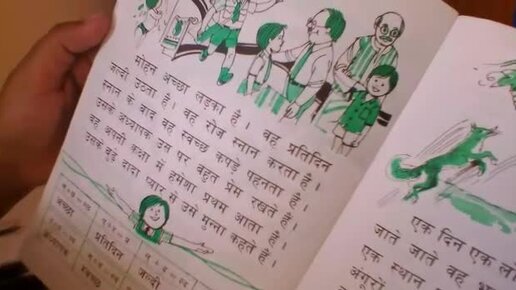 मोहन अच्छा लड़का है । वह प्रतिदिन
जल्दी उठता है । वह रोज स्नान करता है ।
स्नान के बाद वह स्वच्छ कपड़े पहनता है ।
उसके अध्यापक उस पर बहुत प्रेम रखते हैं ।
वह अपनी कक्षा में हमेशा प्रथम आता है ।
उसके बूढ़े दादा प्यार में उसे मुन्ना कहते हैं ।
अच्छा प्रतिदिन जल्दी
स्वच्छ
एक दिन एक
जाते जाते वह
एक स्थान
अंगूरों